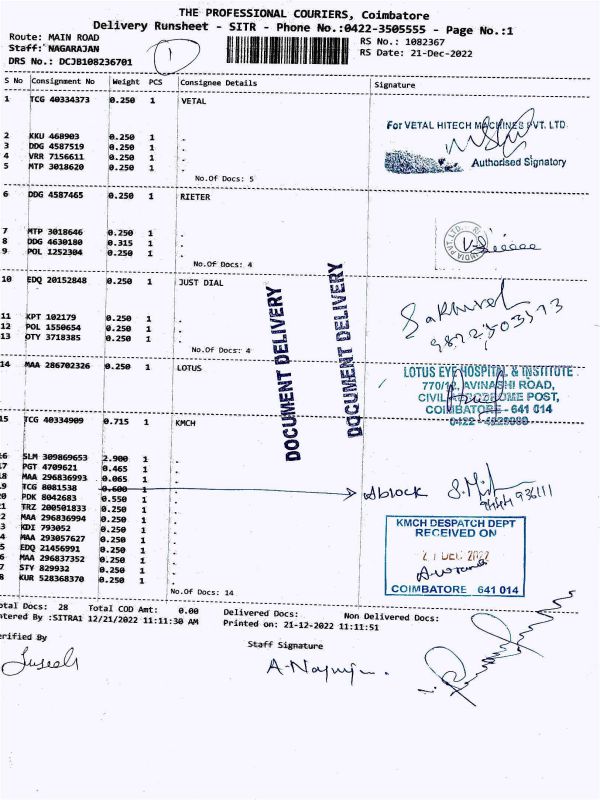 THE PROFESSIONAL COURIERS, Coimbatore
Delivery Runsheet - SITR - Phone No.:0422-3505555 - Page No.:1
Route: MAIN ROAD
RS No.: 1082367
Staff: NAGARAJAN
RS Date: 21-Dec-2022
DRS No.: DCJB108236701
1
S No Consignment No Weight PCS Consignee Details Signature
1 TCG 40334373 0.250 1 VETAL
For VETAL HITECH MACHINES PVT. LTD
2 KKU 468903 0.250 1 .
3 DDG 4587519 0.250 1 .
4 VRR 7156611 0.250 1 .
Authorised Signatory
5 MTP 3018620 0.250 1 .
No.Of Docs: 5
6 DDG 4587465 0.250 1 RIETER
7 MTP 3018646 0.250 1 .
8 DDG 4630180 0.315 1 .
9 POL 1252304 0.250 1 .
No.Of Docs: 4
10 EDQ 20152848 0.250 1 JUST DIAL
11 KPT 102179 0.250 1 .
12 POL 1550654 0.250 1 .
13 OTY 3718385 0.250 1 .
No.Of Docs: 4
DOCUMENT DELIVERY
DOCUMENT DELIVERY
14 MAA 286702326 0.250 1 LOTUS
LOTUS EYE HOSPITAL & INSTITUTE
770/12, AVINASHI ROAD,
CIVIL AERODROME POST,
COIMBATORE - 641 014
15 TCG 40334909 0.715 1 KMCH
16 SLM 309869653 2.900 1 .
17 PGT 4709621 0.465 1 .
18 MAA 296836993 0.065 1 .
19 TCG 8081538 0.600 1
A block
20 PDK 8042683 0.550 1 .
21 TRZ 200501833 0.250 1 .
22 MAA 296836994 0.250 1 .
23 KDI 793052 0.250 1 .
24 MAA 293057627 0.250 1 .
25 EDQ 21456991 0.250 1 .
26 MAA 296837352 0.250 1 .
27 STY 829932 0.250 1 .
28 KUR 528368370 0.250 1 .
No.Of Docs: 14
KMCH DESPATCH DEPT
RECEIVED ON
21 DEC 2022
COIMBATORE 641 014
Total Docs: 28 Total COD Amt: 0.00 Delivered Docs: Non Delivered Docs:
Entered By :SITRA1 12/21/2022 11:11:30 AM Printed on: 21-12-2022 11:11:51
Verified By
Staff Signature